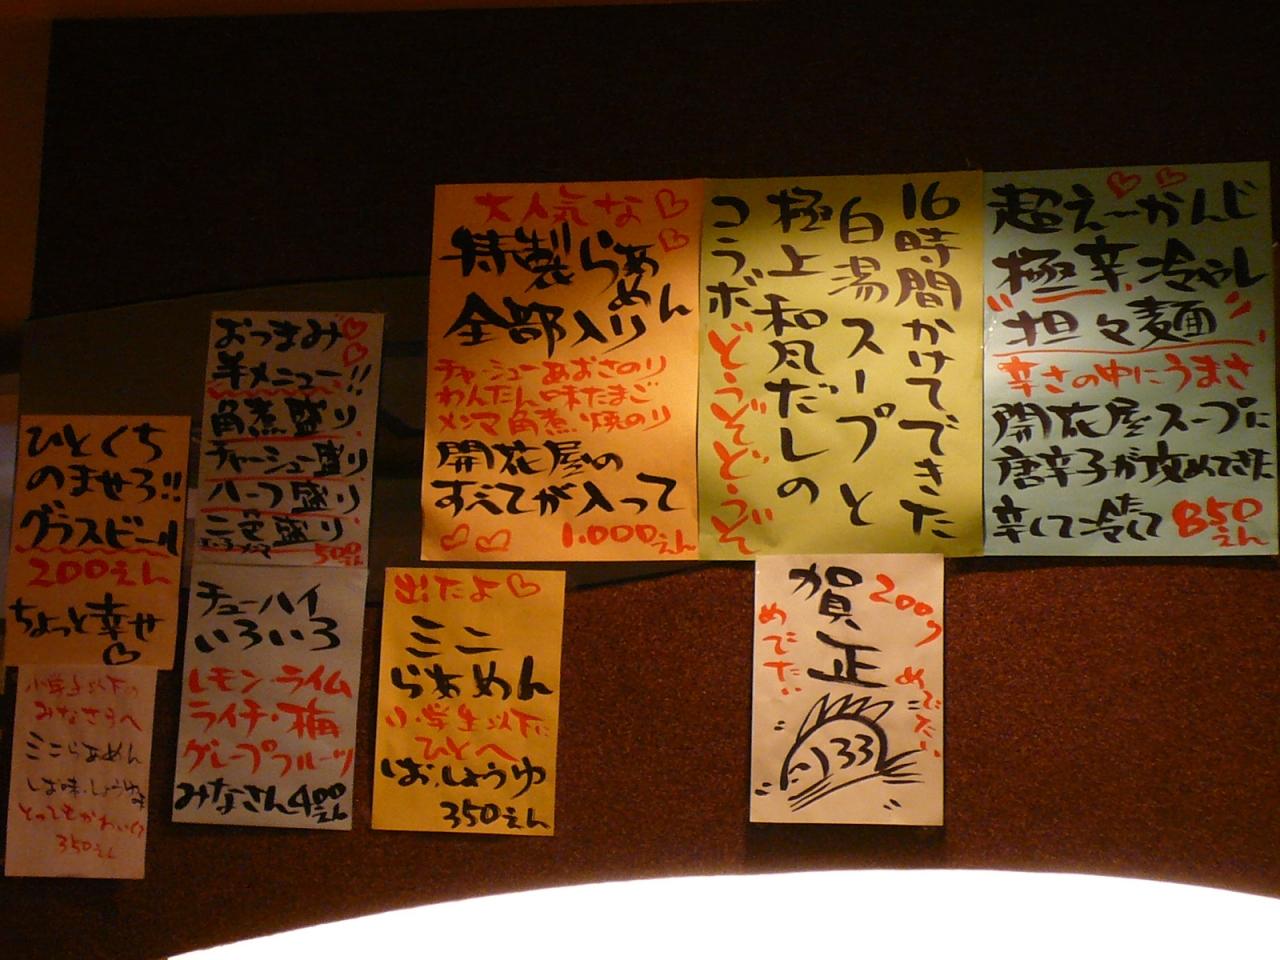 ひとくち
のませろ!!
グラスビール
200えん
ちょっと幸せ
小学生以下の
みなさまへ
ミニらあめん
しお味・しょうゆ味
とってもかわいい
350えん
おつまみ
羊メニュー!!
角煮盛り
チャーシュー盛り
ハーフ盛り
三宝盛り
500えん
チューハイ
いろいろ
レモン・ライム
ライチ・梅
グレープフルーツ
みなさん400えん
出たよ
ミニ
らぁめん
小学生以下に
ひとへ
しお.しょうゆ
350えん
大人気な
特製らぁめん
全部入り
チャーシューあおさのり
わんたん味たまご
メンマ角煮・焼のり
開花屋の
すべてが入って
1.000えん
16時間かけてできた
白湯スープと
極上和風だしの
コラボどうぞどうぞ
超えーかんじ
極辛冷やし
担々麺
辛さの中にうまさ
開花屋スープに
唐辛子が攻めてきた
辛くて冷くて
850えん
賀正
2009
めでたい
めでたい